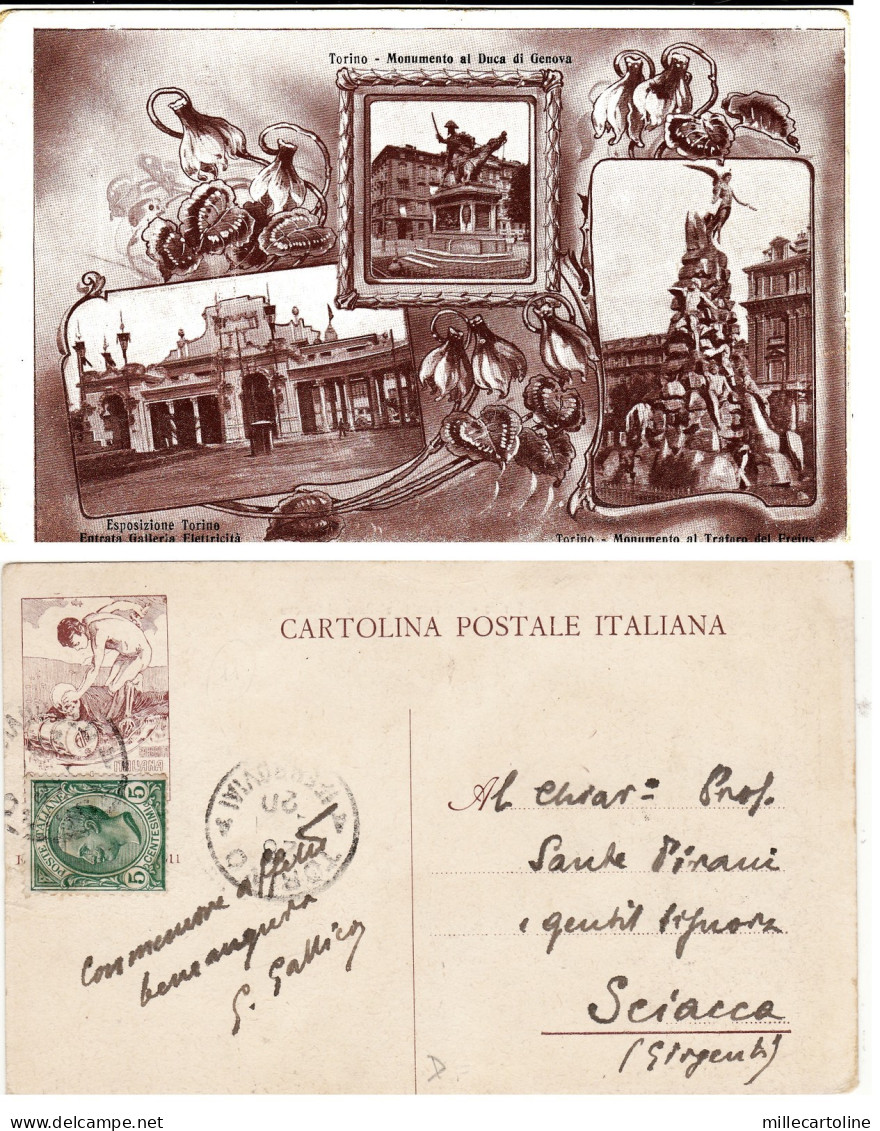 Torino - Monumento al Duca di Genova
Esposizione Torino
Entrata Galleria Elettricità
Torino - Monumento al Traforo del Freius
CARTOLINA POSTALE ITALIANA
ITALIANA
POSTE ITALIANE
5
CENTESIMI
5
11
TORINO
(FERROVIA)
Al Chiar.o Prof.
Sante Pirani
e gentil signora
Sciacca
(Girgenti)
Con memore affetto
bene augura
G. Gallico
millecartoline